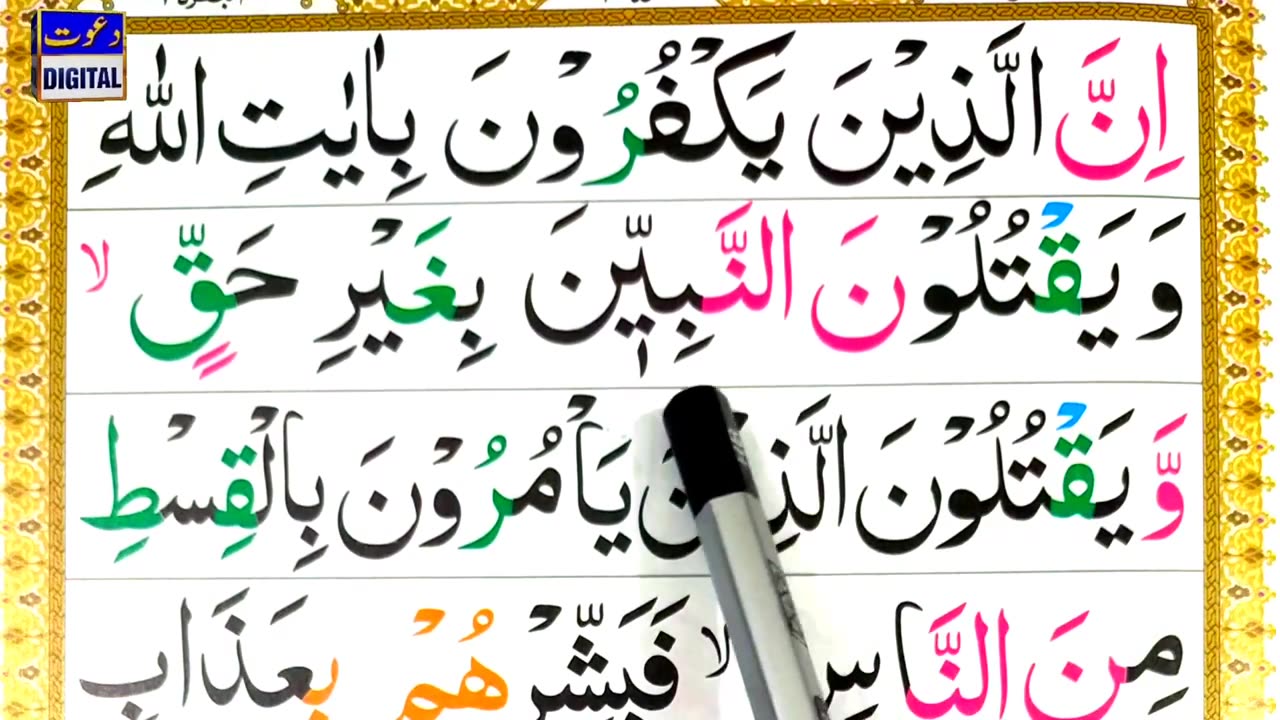 دعوت
DIGITAL
اِنَّ الَّذِيْنَ يَكْفُرُوْنَ بِاٰيٰتِ اللّٰهِ
وَ يَقْتُلُوْنَ النَّبِيّٖنَ بِغَيْرِ حَقٍّ ۙ
وَّ يَقْتُلُوْنَ الَّذِيْنَ يَاْمُرُوْنَ بِالْقِسْطِ
مِنَ النَّاسِ ۙ فَبَشِّرْهُمْ بِعَذَابٍ